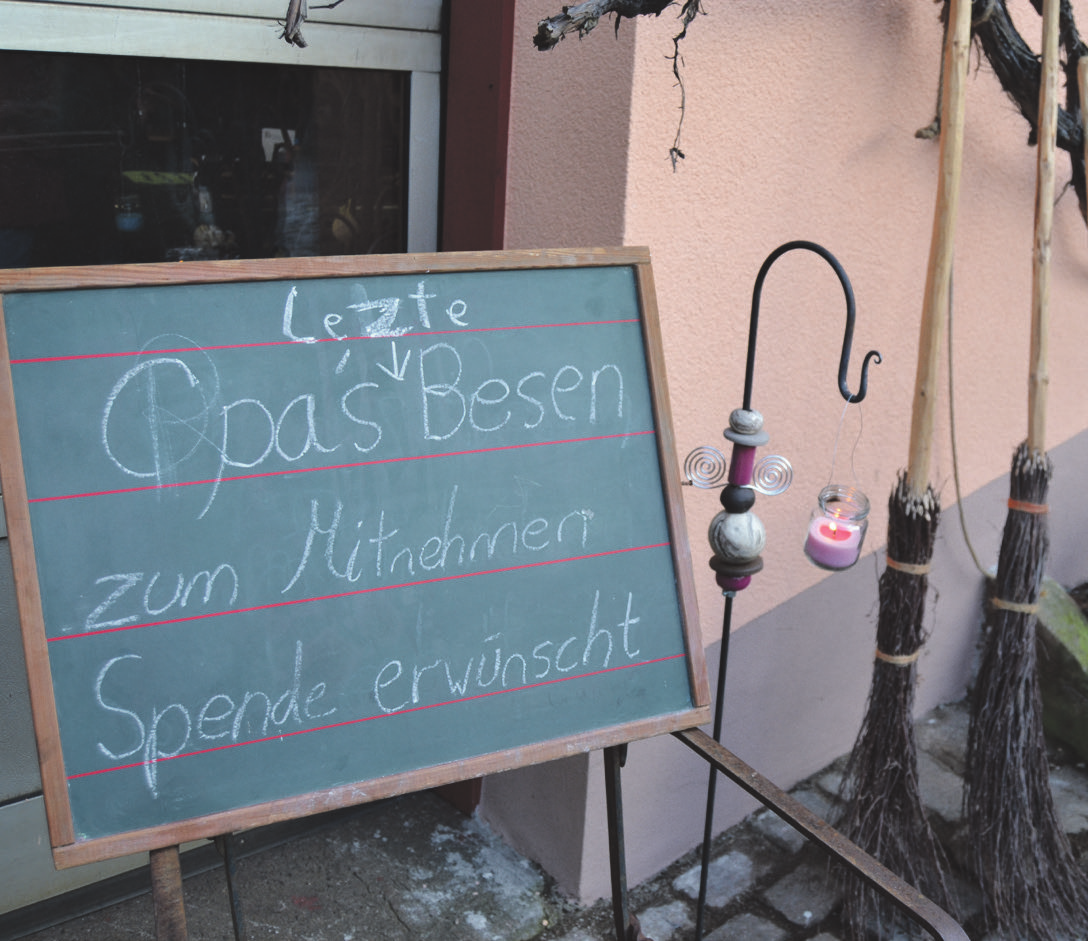 Lezte
Opa's Besen
zum Mitnehmen
Spende erwünscht